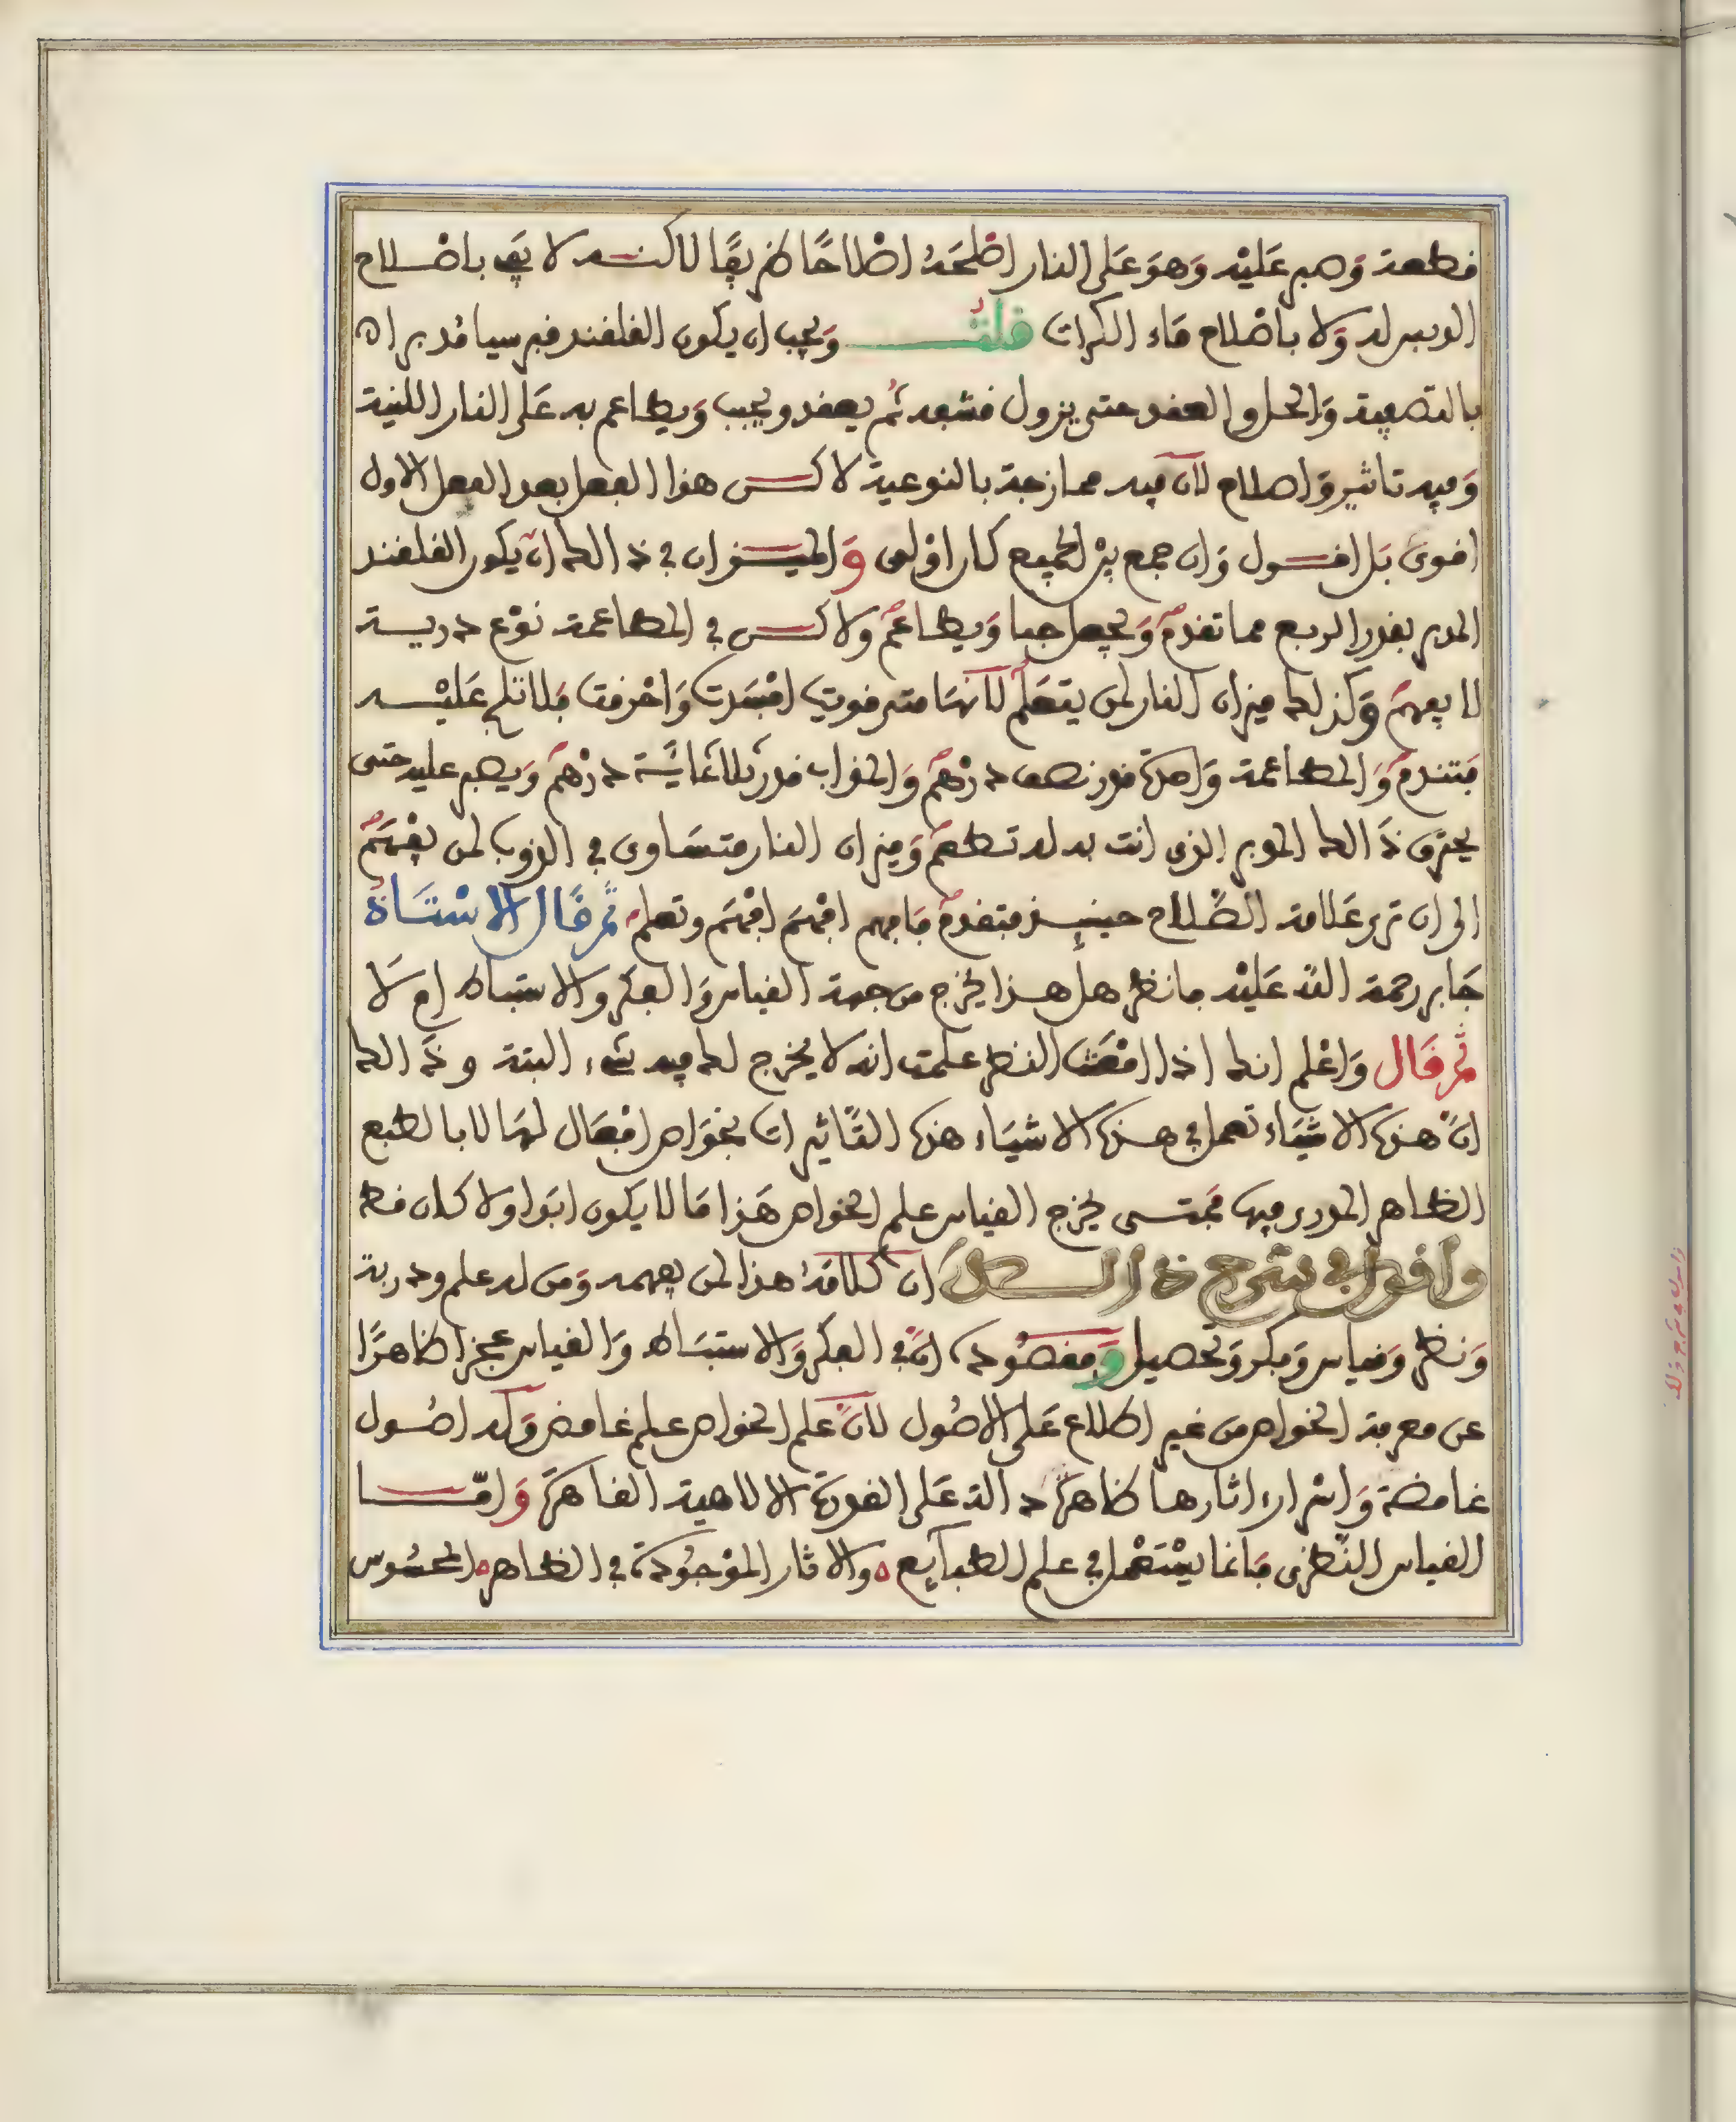 قطعة وصبر عليه وهو على النار اصلحه اصلاحًا طريفًا لاكنه لا يفي باصلاح
ولا باصلاح ماء الكراث قلت ويجب ان يكون القلقند قبرسيا مدبرا
بالتصفية والحل والعقد حتى يزول قشبه ثم يعقد ويحبب ويطاعم به على النار اللينة
وفيه تاثير واصلاح لان فيه ممازجة بالنوعية لاكن هذا الفعل بعد الفعل الاول
اقوى بل اقول وان جمع بين الجميع كان اولى والميزان في ذالك ان يكون القلقند
المدبر بقدر الربع مما تقدم ويجعل حبا ويطاعم ولاكن في المطاعمة نوع دربة
لا يفهم وكذلك ميزان النار لمن يتعلم لانها متى قويت افسدت واحرقت فلا تلح عليه
فتندم والمطاعمة واحدة قدر نصف درهم والمذاب قدر ثلاثماية درهم ويصبر عليه حتى
يحترق ذالك المدبر الذي انت به له تطعم وميزان النار متساوي في الذوب لمن يفهم
الى ان ترى علامة الصلاح حينئذ فتقدم فافهم افهم افهم وتعلم ثم قال الاستاذ
جابر رحمة الله عليه فانظر هل هذا يخرج من جهة القياس والفكر والاستنباط ام لا
ثم قال واعلم انك اذا امعنت النظر علمت انه لا يخرج لك فيه شيء البتة وذالك
ان هذه الاشياء تعمل في هذه الاشياء هذه التاثيرات بخواص افعال لها لا بالطبع
الظاهر الموجود فيها فمتى يخرج القياس علم الخواص هذا ما لا يكون ابدا ولا كان قط
واقول في شرح ذالك ان كلامه هذا لمن يفهمه ومن له علم ودربة
ونظر وقياس وفكر وتحصيل ومقصوده ان في الفكر والاستنباط والقياس عجزا ظاهرًا
عن معرفة الخواص من غير اطلاع على الاصول لان علم الخواص علم غامض وله اصول
غامضة واسرار اثارها ظاهرة دالة على القوة الالاهية القاهرة وامّا
القياس النظري فانما يستعمل في علم الطبايع والاثار الموجودة في الظاهر المحسوس
واقول في شرح ذلك